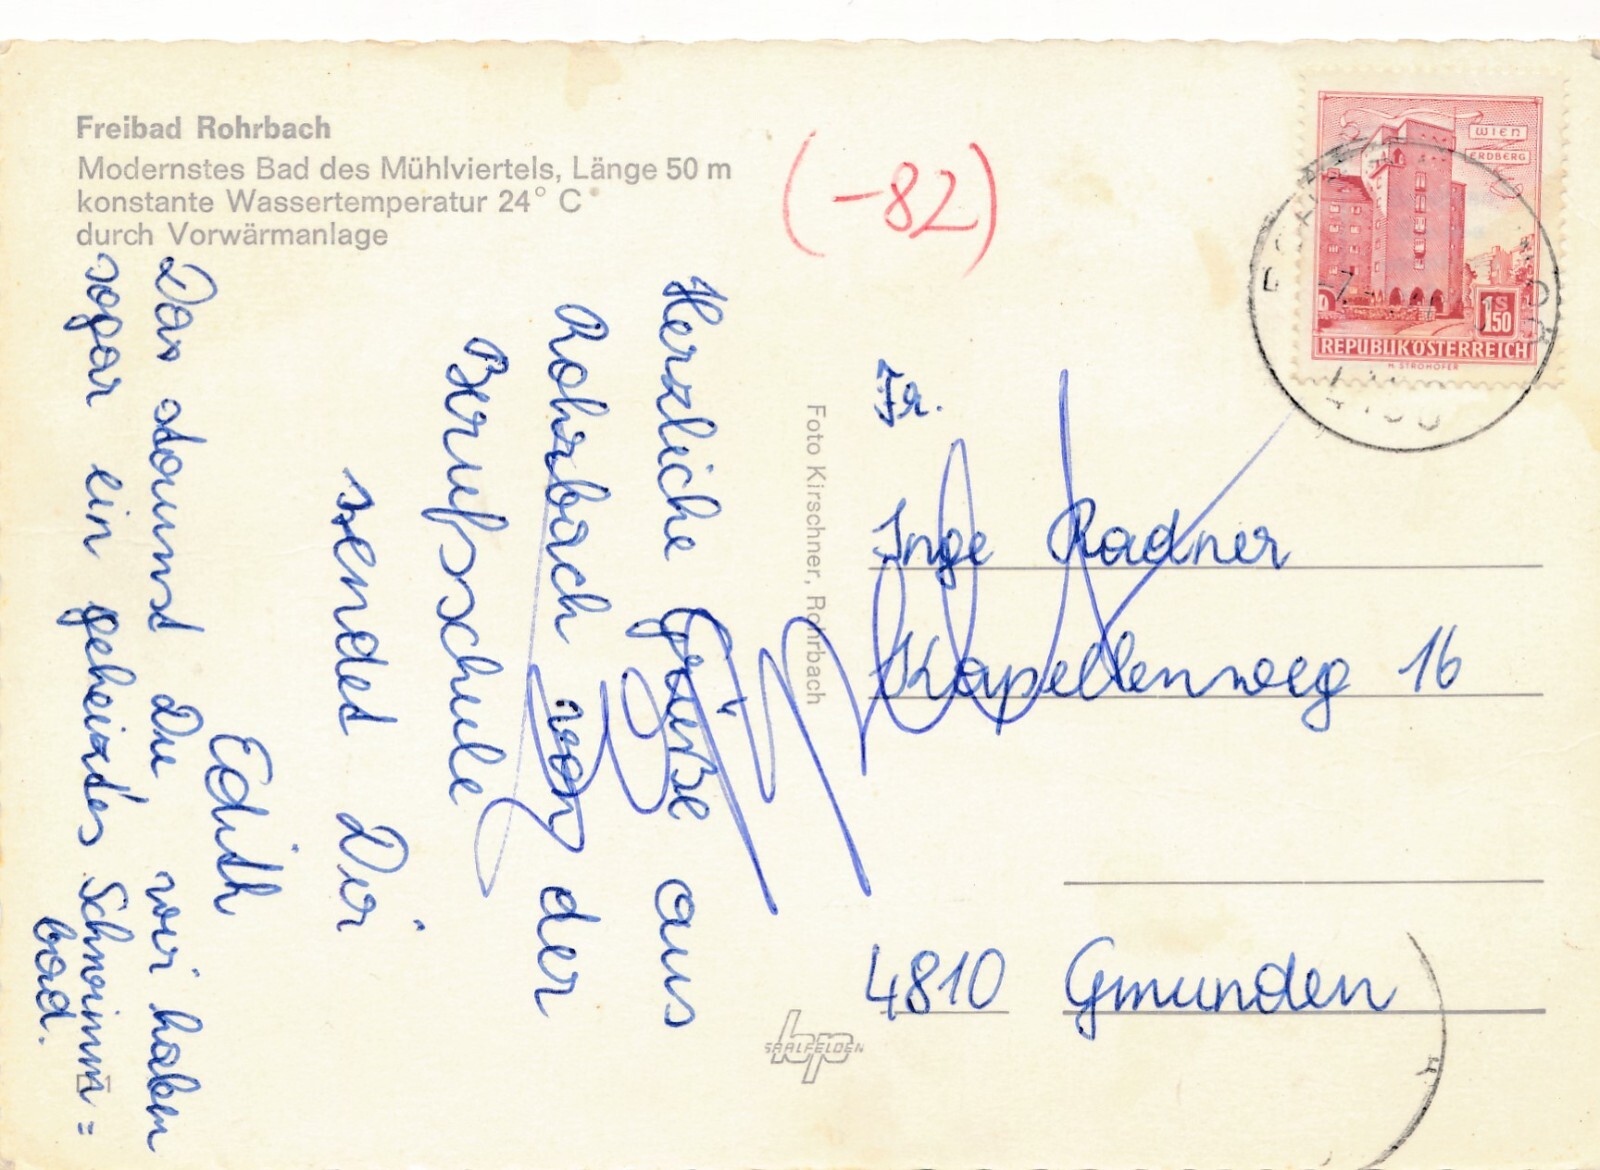 Freibad Rohrbach
Modernstes Bad des Mühlviertels, Länge 50 m
konstante Wassertemperatur 24° C
durch Vorwärmanlage
(-82)
WIEN
ERDBERG
1S
50
REPUBLIK ÖSTERREICH
H. STROHOFER
Herzliche Grüße aus
Rohrbach von der
Berufsschule
sendet Dir
Edith
Das staunst Du wir haben
sogar ein geheizt'es Schwimm=
bad.
Foto Kirschner, Rohrbach
Fr.
Inge Radner
Kapellenweg 16
4810 Gmunden
hp
SAALFELDEN